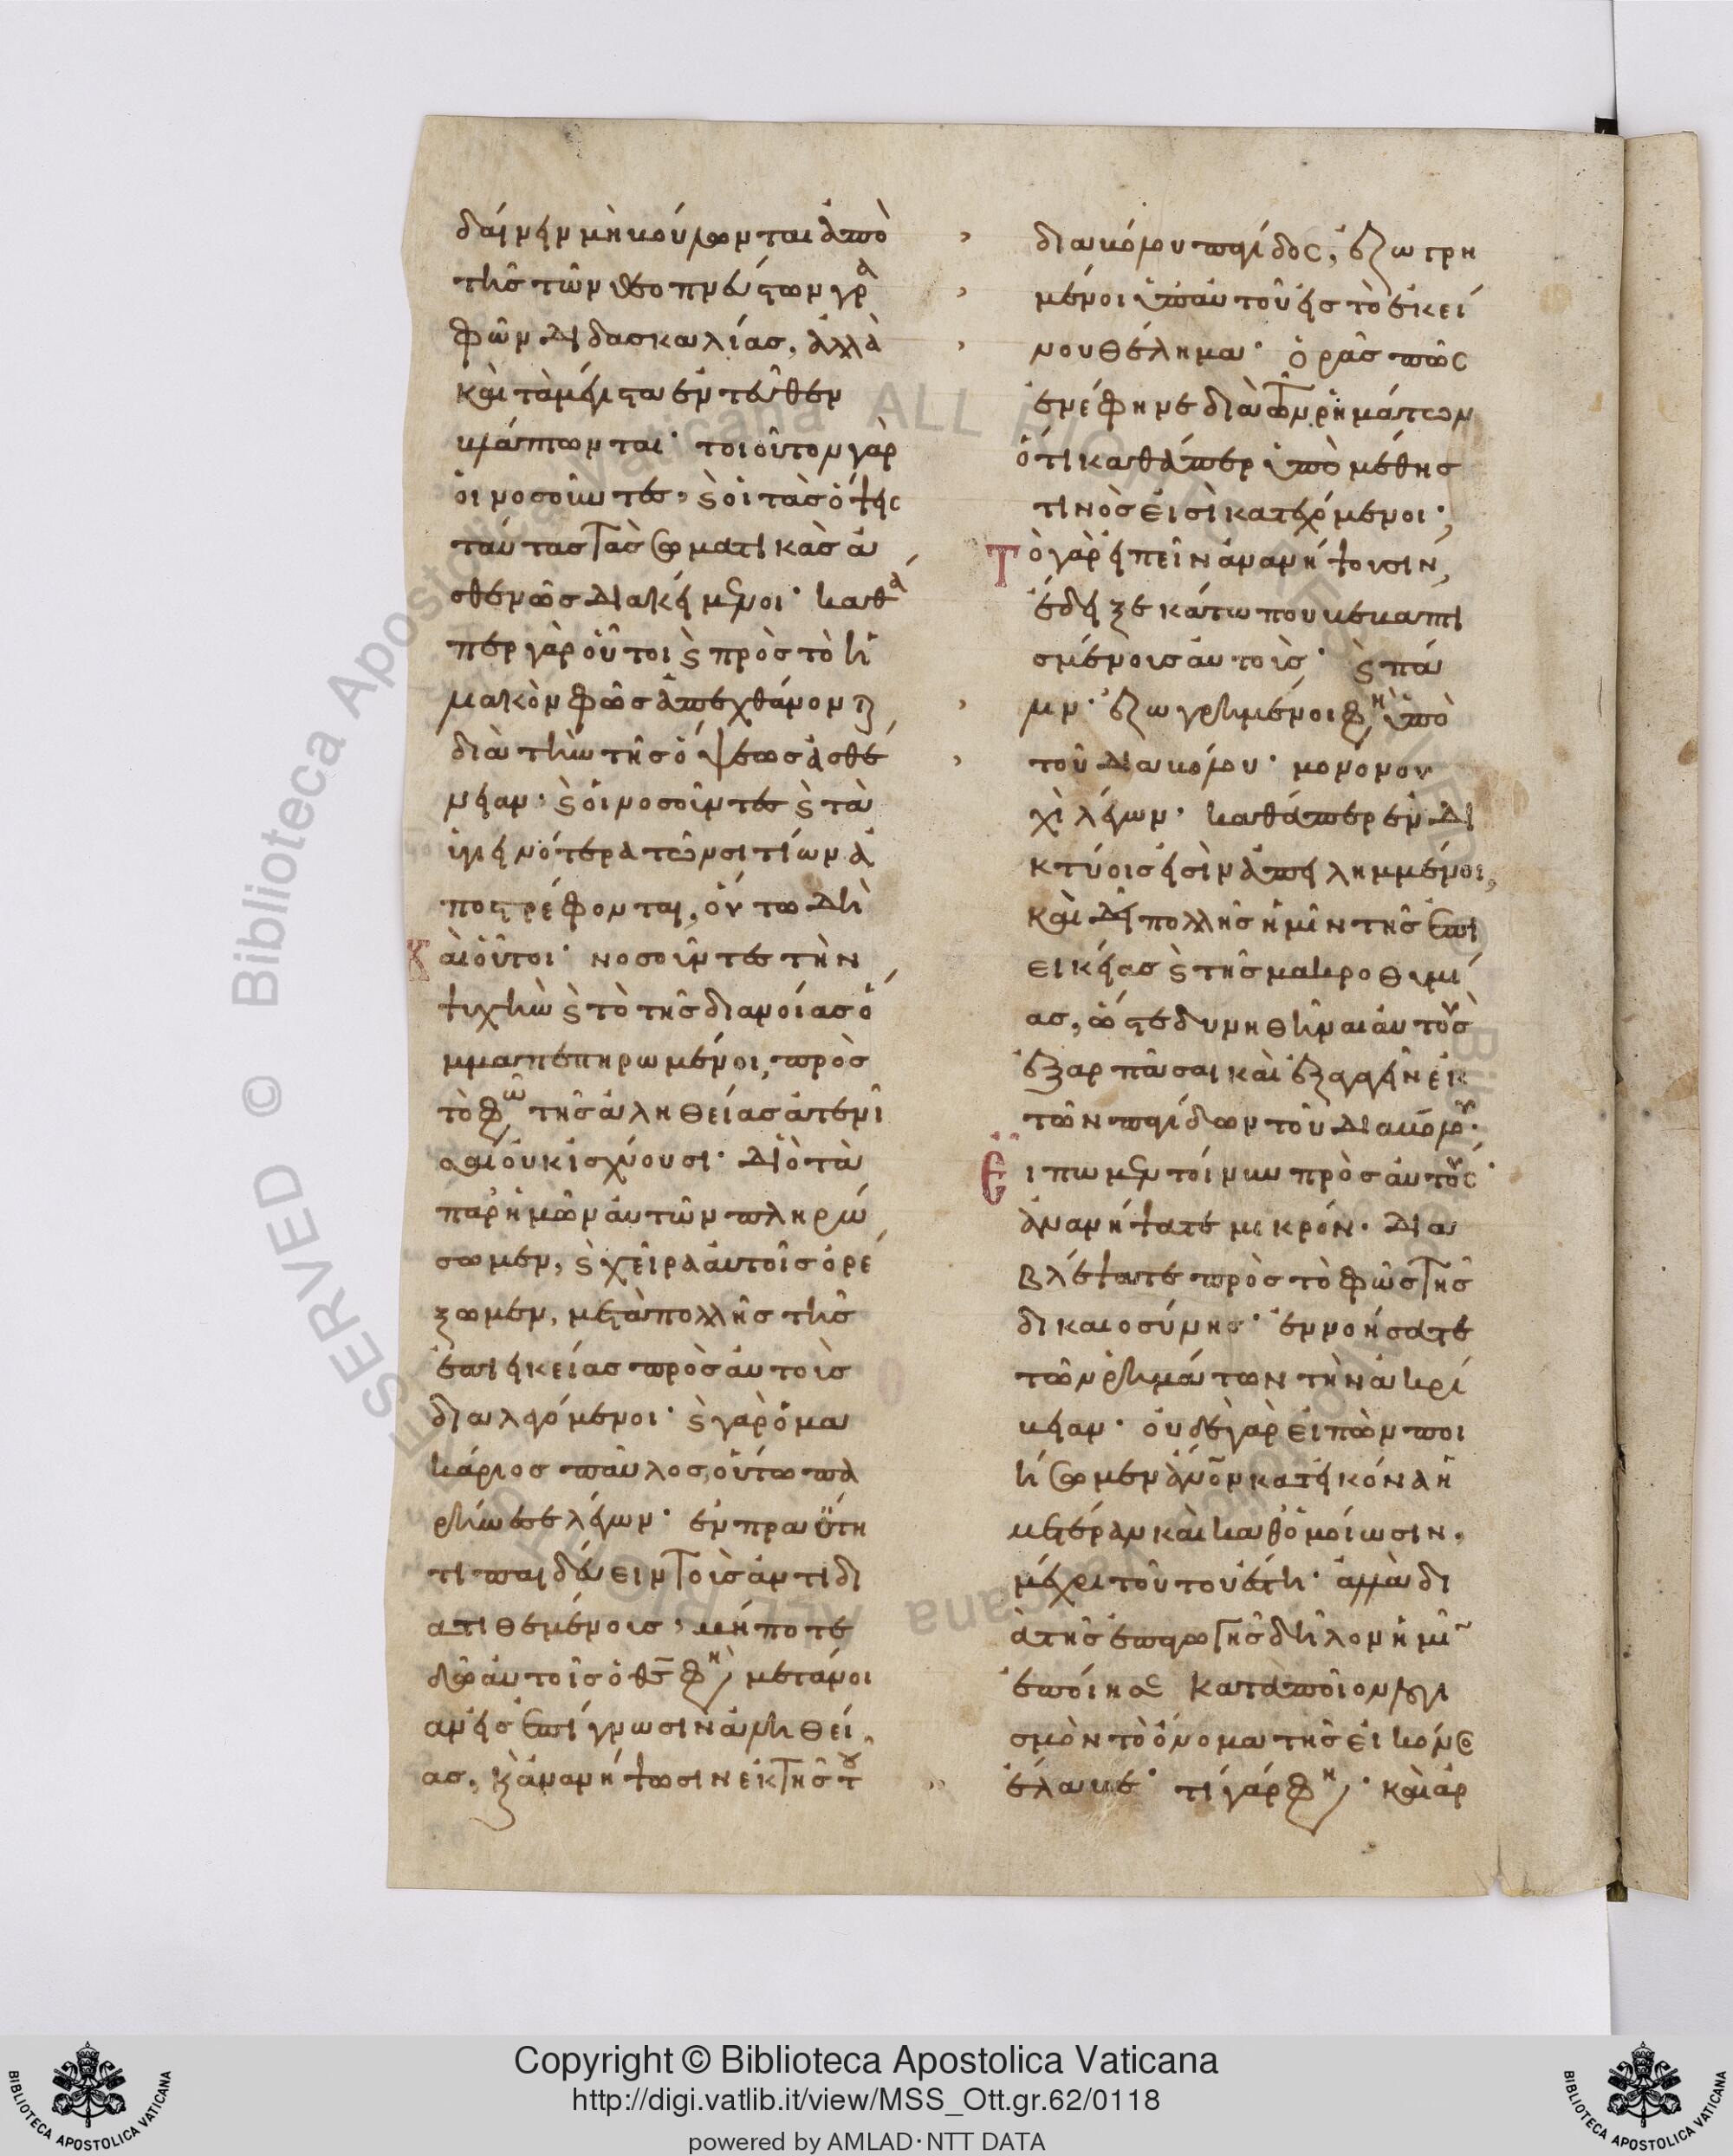 δαίνειν μὴ κούφωνται ἀπὸ
τῆς τῶν θεοπνεύστων γρα
φῶν διδασκαλίας, ἀλλὰ
καὶ τὰ μέγιστα ἐντεῦθεν
βλάπτωνται· τοιοῦτον γὰρ
οἱ νοσοῦντες, καὶ οἱ τὰς ὄψεις
ταύτας τὰς σωματικὰς ἀ
σθενῶς διακείμενοι· καθά
περ γὰρ οὗτοι καὶ πρὸς τὸ ἡ
λιακὸν φῶς ἀπεχθάνονται
διὰ τὴν τῆς ὄψεως ἀσθέ
νειαν· καὶ οἱ νοσοῦντες καὶ τὰ
ὑγιεινότερα τῶν σιτίων ἀ
ποστρέφονται, οὕτω δὴ
καὶ οὗτοι· νοσοῦντες τὴν
ψυχὴν καὶ τὸ τῆς διανοίας ὄ
μμα πεπηρωμένοι, πρὸς
τὸ φῶς τῆς ἀληθείας ἀτενί
σαι οὐκ ἰσχύουσι· διὸ τὰ
παρ' ἡμῶν αὐτῶν πληρώ
σωμεν, καὶ χεῖρα αὐτοῖς ὀρέ
ξωμεν, μετὰ πολλῆς τῆς
ἐπιεικείας πρὸς αὐτοὺς
διαλεγόμενοι· καὶ γὰρ ὁ μα
κάριος παῦλος, οὕτω πα
ρῄνεσε λέγων· ἐν πραΰτη
τι παιδεύειν τοὺς ἀντιδι
ατιθεμένους, μήποτε
δῷ αὐτοῖς ὁ θς φη(σὶ) μετάνοι
αν εἰς ἐπίγνωσιν ἀληθεί
ας, καὶ ἀνανήψωσιν ἐκ τῆς τοῦ
διαβόλου παγίδος, ἐζωγρη
μένοι ὑπ' αὐτοῦ εἰς τὸ ἐκεί
νου θέλημα· ὁρᾶς πῶς
ἐνέφηνε διὰ τῶν ῥημάτων
ὅτι καθάπερ ὑπὸ μέθης
τινὸς εἰσὶ κατεχόμενοι·
Τὸ γὰρ εἰπεῖν ἀνανήψουσιν,
ἔδειξε κάτω που βεβαπτι
σμένους αὐτοὺς· καὶ πά
λιν· ἐζωγρημένοι φη(σὶν) ὑπὸ
τοῦ διαβόλου· μονονου
χὶ λέγων· καθάπερ ἐν δι
κτύοις εἰσὶν ἀπειλημμένοι,
καὶ δεῖ πολλῆς ἡμῖν τῆς ἐπι
εικείας καὶ τῆς μακροθυμί
ας, ὥστε δυνηθῆναι αὐτοὺς
ἐξαρπάσαι καὶ ἐξαγαγεῖν ἐκ
τῶν παγίδων τοῦ διαβόλου·
Εἴπωμεν τοίνυν πρὸς αὐτούς·
ἀνανήψατε μικρόν· δια
βλέψατε πρὸς τὸ φῶς τῆς
δικαιοσύνης· ἐννοήσατε
τῶν ῥημάτων τὴν ἀκρί
βειαν· οὐδὲ γὰρ εἰπὼν ποι
ήσωμεν ἄνον κατ' εἰκόνα ἡ
μετέραν καὶ καθ' ὁμοίωσιν,
μέχρι τούτου ἔστη· ἀλλὰ δι
ὰ τῆς ἐπαγωγῆς δῆλον ἡμῖν
ἐποίησε κατὰ ποῖον λογι
σμὸν τὸ ὄνομα τῆς εἰκόνος
ἔλαβε· τί γάρ φη(σι)· καὶ ἀρ
Copyright © Biblioteca Apostolica Vaticana
http://digi.vatlib.it/view/MSS_Ott.gr.62/0118
powered by AMLAD·NTT DATA